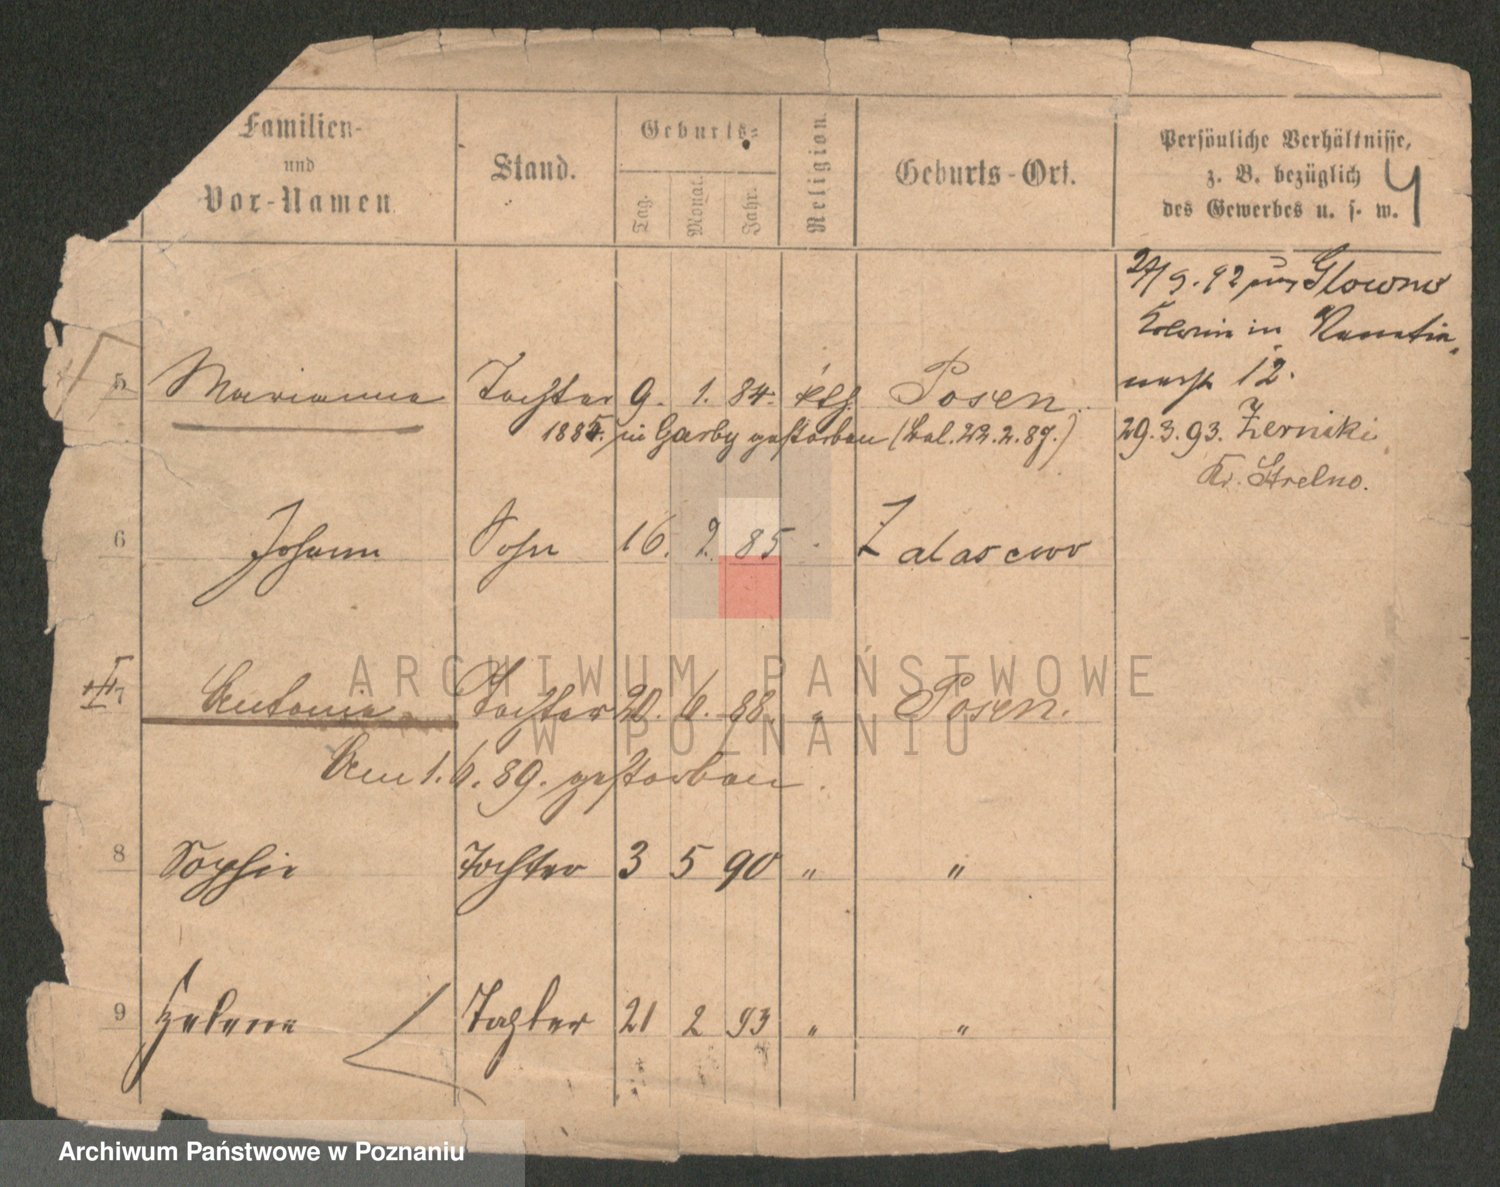 Familien-
und
Vor-Namen
Stand.
Geburts-
Tag.
Monat.
Jahr.
Religion.
Geburts-Ort.
Persönliche Verhältnisse,
z. B. bezüglich
des Gewerbes u. s. w.
4
9. 92 Glowno
in
12.
29. 3. 93. Zerniki
Kr. Strelno.
5 Marianna Tochter 9. 1. 84. kth. Posen
1885. in Garby gestorben (bal. 22. 2. 87.)
6 Johann Sohn 16. 2. 85 Zalasewo
7 Antonie Tochter 20. 6. 88. " Posen.
Am 1. 6. 89. gestorben.
8 Sophie Tochter 3 5 90 " "
9 Helene Tochter 21 2 93 " "
ARCHIWUM PAŃSTWOWE
W POZNANIU
Archiwum Państwowe w Poznaniu